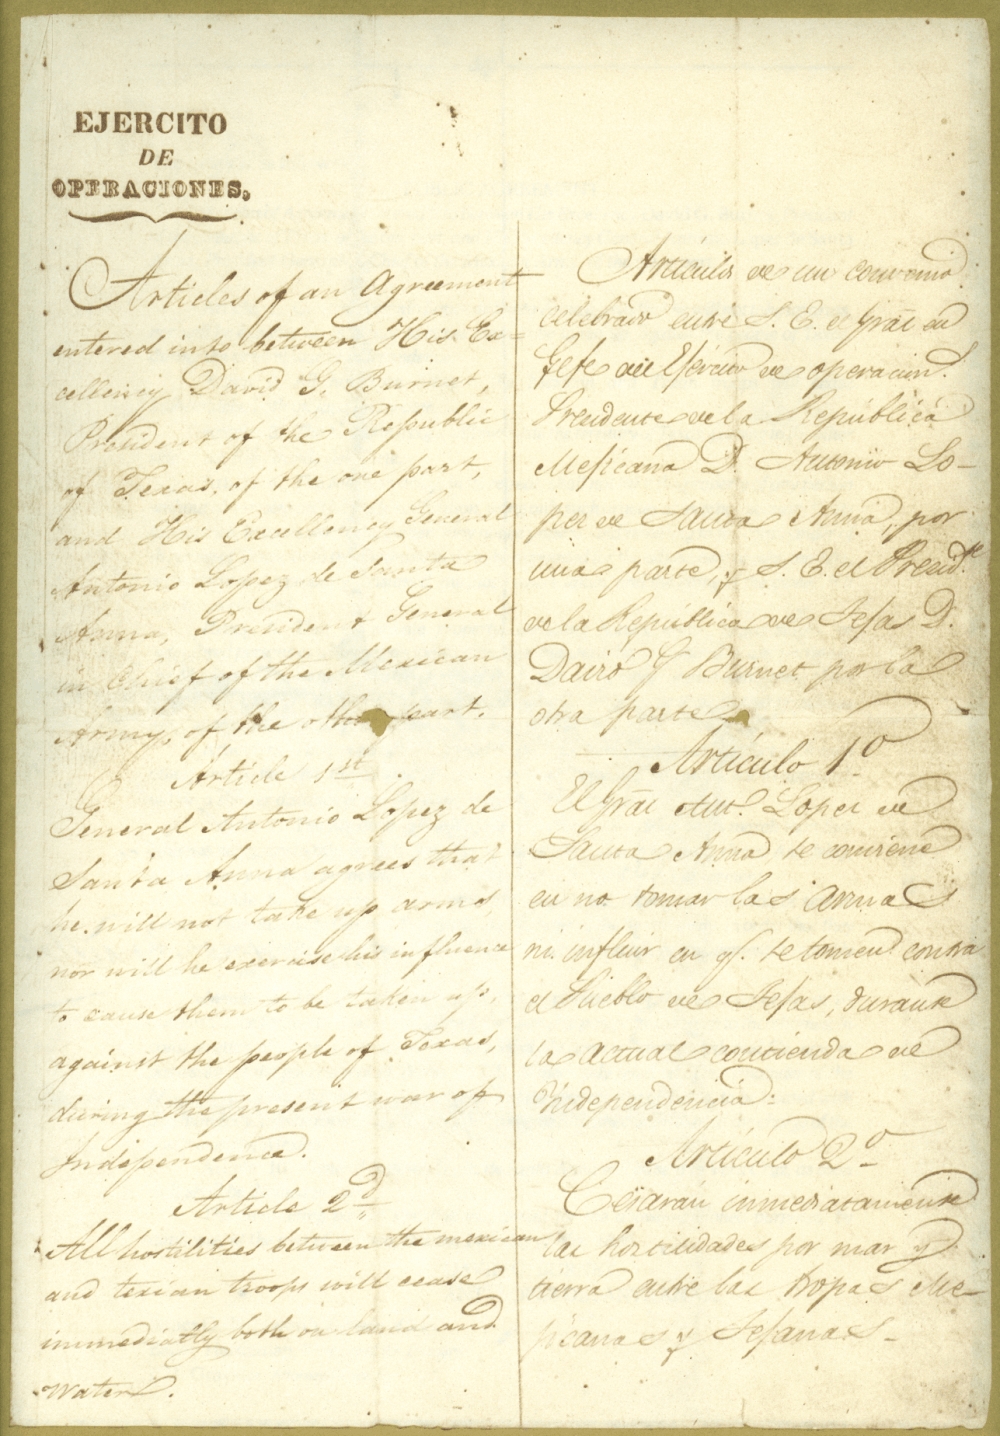 EJERCITO
DE
OPERACIONES.
Articles of an Agreement
entered into between His Ex=
cellency David G. Burnet,
President of the Republic
of Texas, of the one part,
and His Excellency General
Antonio Lopez de Santa
Anna, President General
in Chief of the Mexican
Army, of the other part.
Article 1st.
General Antonio Lopez de
Santa Anna agrees that
he will not take up arms,
nor will he exercise his influence
to cause them to be taken up,
against the people of Texas,
during the present war of
Independence.
Article 2d
All hostilities between the mexican
and texian troops will cease
immediatly both on land and
water.
Artículos de un convenio
celebrado entre S. E. el Gral en
Gefe del Ejército de operacions.
Presidente de la República
Mejicana D. Antonio Lo-
pez de Santa Anna, por
una parte, y S. E. el Presidte
de la República de Tejas D.
David G Burnet por la
otra parte
Artículo 1o
El Gral Anto. Lopez de
Santa Anna se conviene
en no tomar las armas
ni influir en qe. se tomen contra
el Pueblo de Tejas, durante
la actual contienda de
Independencia.
Artículo 2o
Cesarán inmediatamente
las hostilidades por mar y
tierra entre las tropas Me-
jicanas y Tejanas-